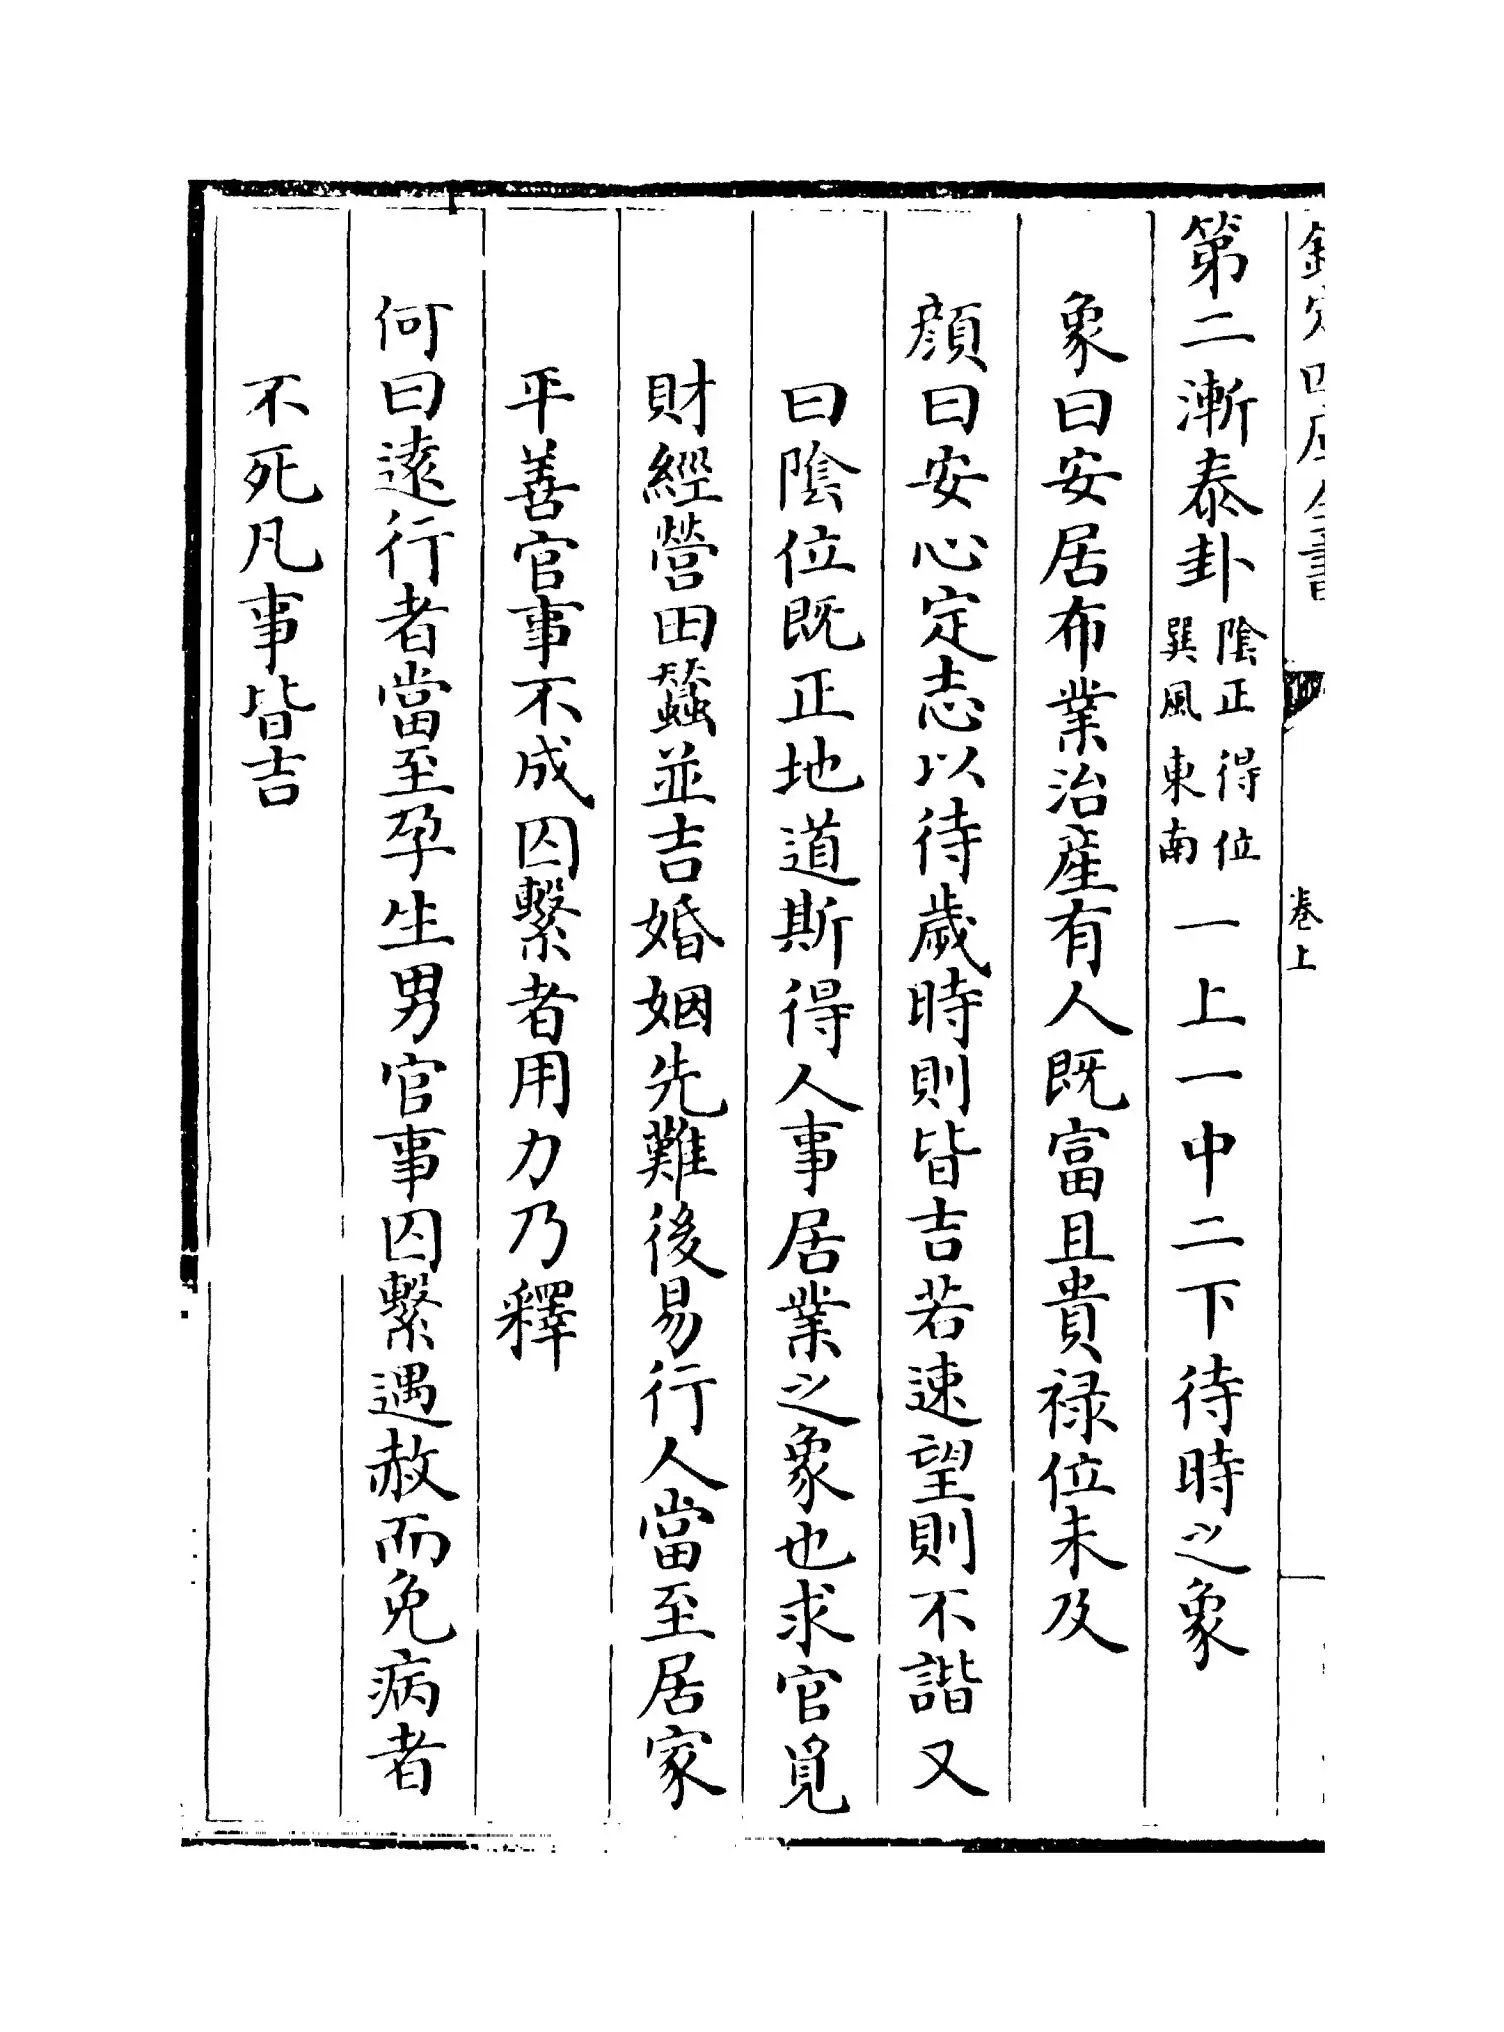 欽定四庫全書
卷上
第二漸泰卦陰正得位巽風東南一上一中二下待時之象
象曰安居布業治產有人既富且貴祿位未及
顔曰安心定志以待歲時則皆吉若速望則不諧又
曰陰位既正地道斯得人事居業之象也求官覓
財經營田蠶並吉婚姻先難後易行人當至居家
平善官事不成囚繫者用力乃釋
何曰遠行者當至孕生男官事囚繫遇赦而免病者
不死凡事皆吉